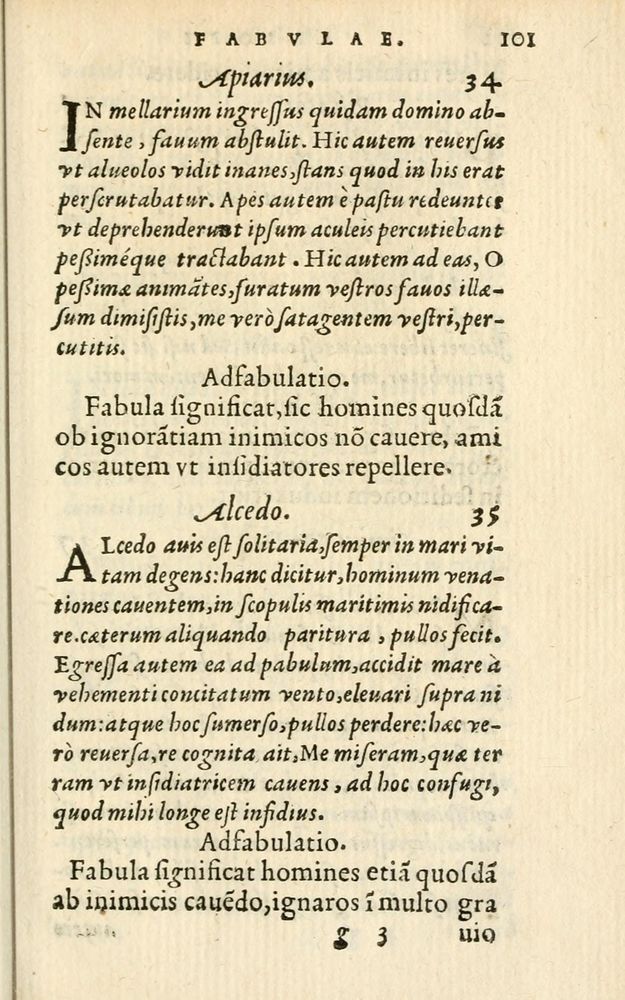 FABVLAE. 101
Apiarius. 34
IN mellarium ingreſſus quidam domino ab-
ſente, fauum abſtulit. Hic autem reuerſus
vt alueolos vidit inanes, ſtans quod in his erat
perſcrutabatur. Apes autem è paſtu redeuntes
vt deprehenderunt ipſum aculeis percutiebant
peſſiméque tractabant. Hic autem ad eas, O
peſſimæ animātes, furatum veſtros fauos illæ-
ſum dimiſiſtis, me verò ſatagentem veſtri, per-
cutitis.
Adfabulatio.
Fabula ſignificat, ſic homines quoſdā
ob ignorātiam inimicos nō cauere, ami
cos autem vt inſidiatores repellere.
Alcedo. 35
ALcedo auis eſt ſolitaria, ſemper in mari vi-
tam degens: hanc dicitur, hominum vena-
tiones cauentem, in ſcopulis maritimis nidifica-
re. cæterum aliquando paritura, pullos fecit.
Egreſſa autem ea ad pabulum, accidit mare à
vehementi concitatum vento, eleuari ſupra ni
dum: atque hoc ſumerſo, pullos perdere: hæc ve-
rò reuerſa, re cognita ait, Me miſeram, quæ ter
ram vt inſidiatricem cauens, ad hoc confugi,
quod mihi longe eſt infidius.
Adfabulatio.
Fabula ſignificat homines etiā quoſdā
ab inimicis cauēdo, ignaros ī multo gra
g 3 uio